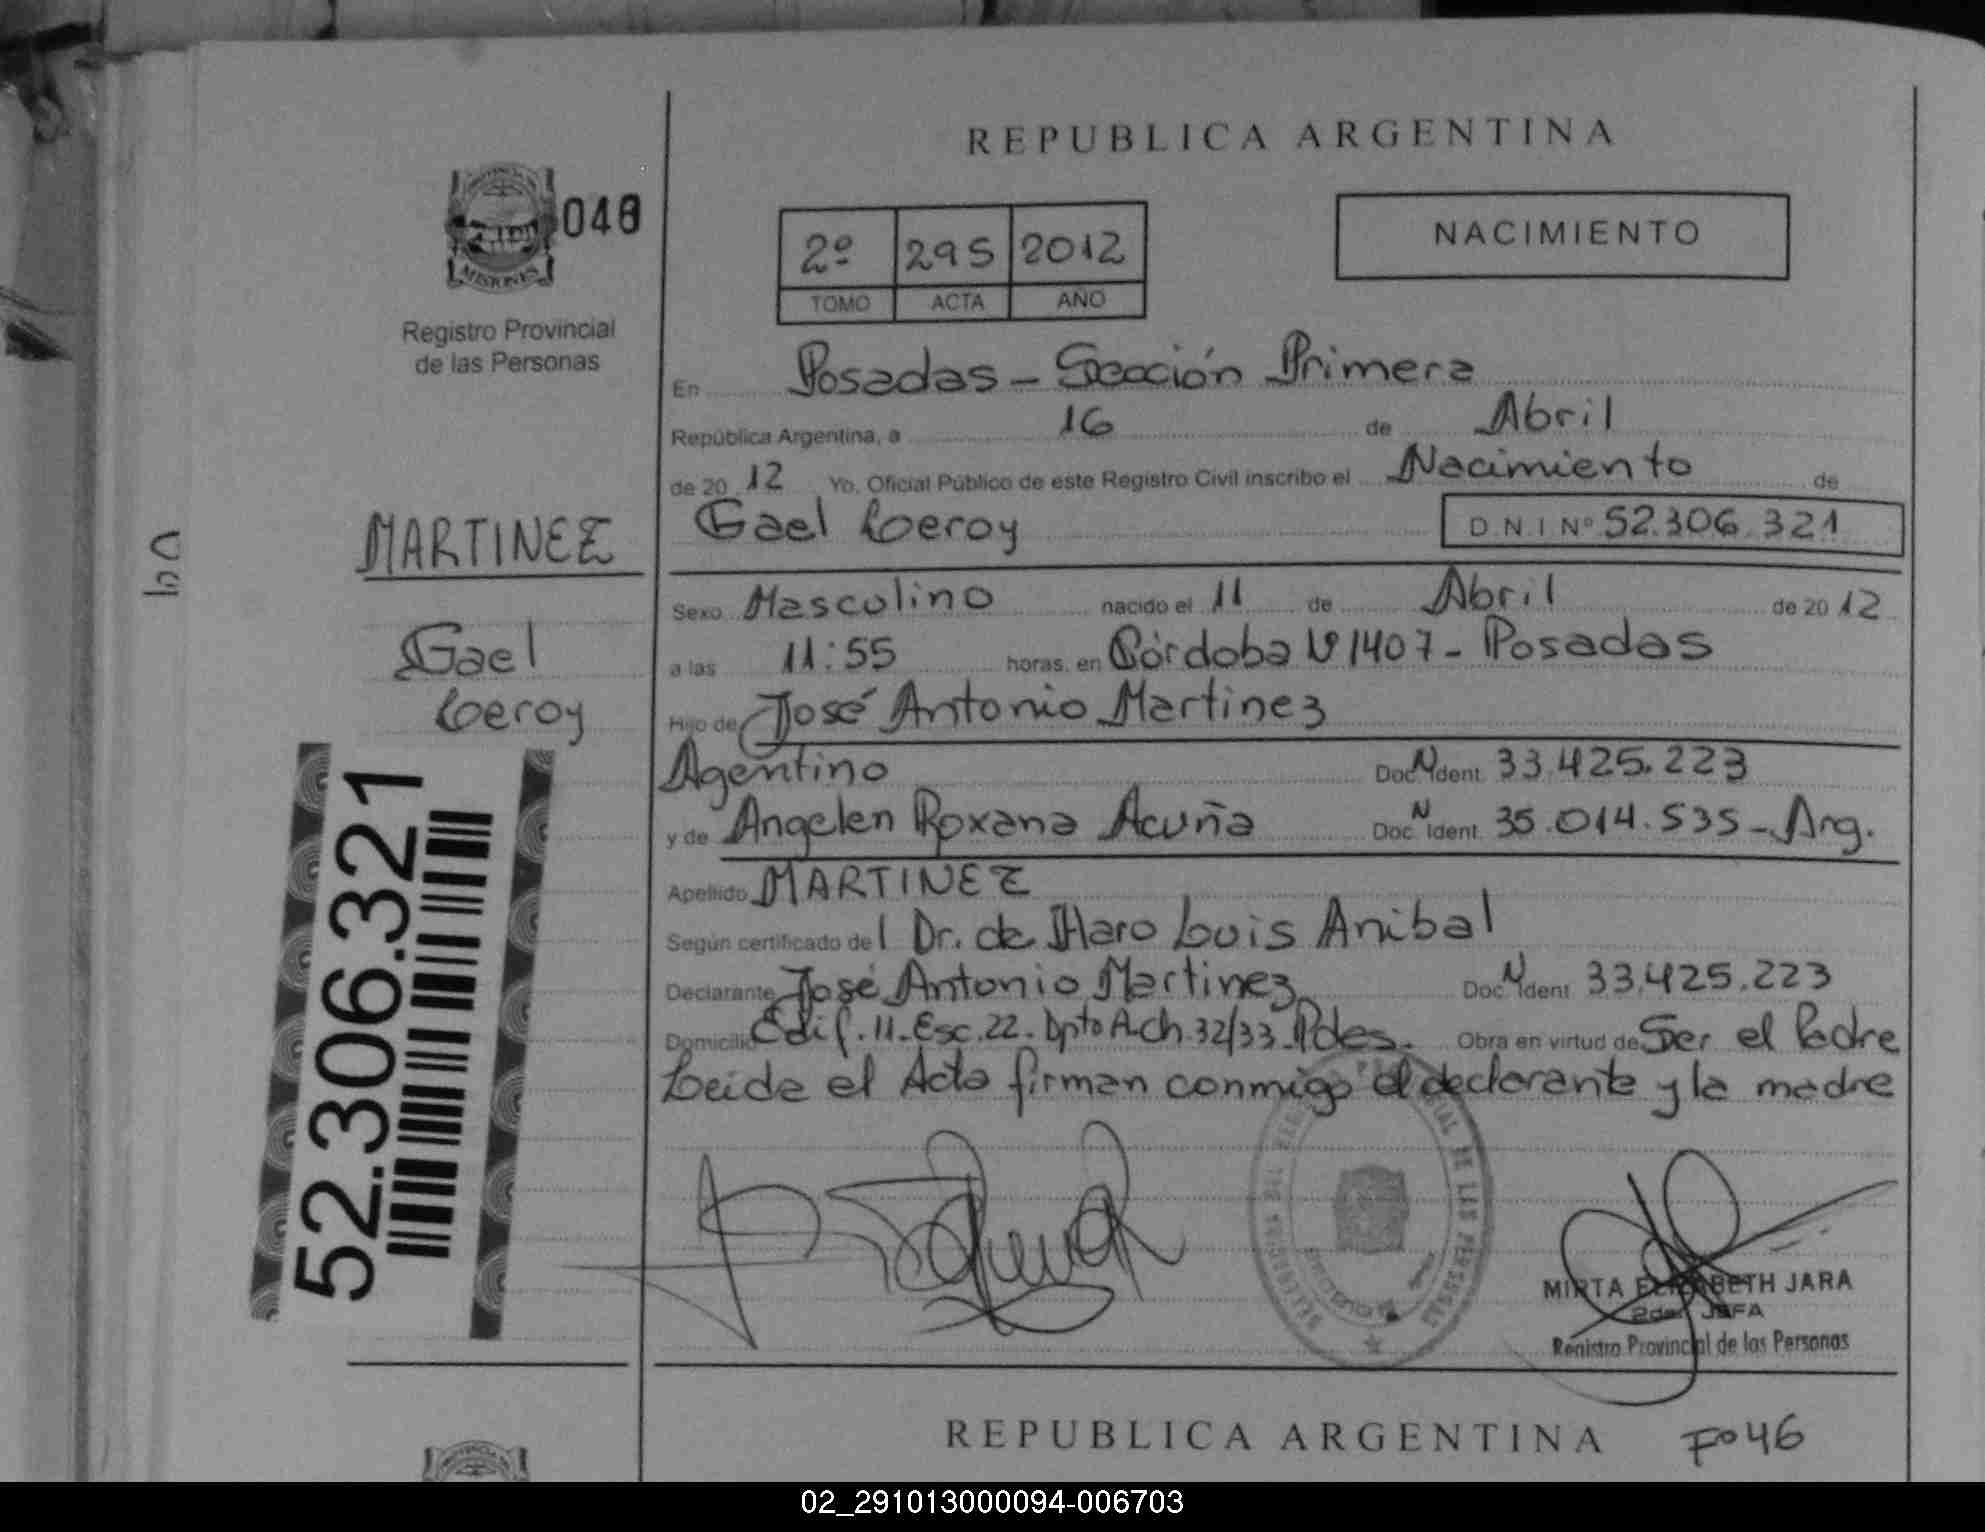 REPUBLICA ARGENTINA
NACIMIENTO
046
MISIONES
Registro Provincial
de las Personas
2º 295 2012
TOMO ACTA AÑO
En Posadas - Sección Primera
República Argentina, a 16 de Abril
de 20 12 Yo, Oficial Público de este Registro Civil inscribo el Nacimiento de
Gael Leroy D.N.I Nº 52.306.321
MARTINEZ
Gael
Leroy
52.306.321
Sexo Masculino nacido el 11 de Abril de 20 12
a las 11:55 horas. en Córdoba Nº 1407 - Posadas
Hijo de José Antonio Martinez
Agentino Doc. N Ident. 33.425.223
y de Angelen Roxana Acuña Doc. N Ident. 35.014.535 - Arg.
Apellido MARTINEZ
Según certificado del Dr. de Haro Luis Anibal
Declarante José Antonio Martinez Doc. N Ident. 33.425.223
Domicilio Edif. 11 - Esc. 22 - Dpto A - Ch. 32/33 - Pdas. Obra en virtud de Ser el Padre
Leida el Acta firman conmigo el declarante y la madre
MIRTA ELIZABETH JARA
2da. JEFA
Registro Provincial de las Personas
REPUBLICA ARGENTINA
Fº 46
02_291013000094-006703